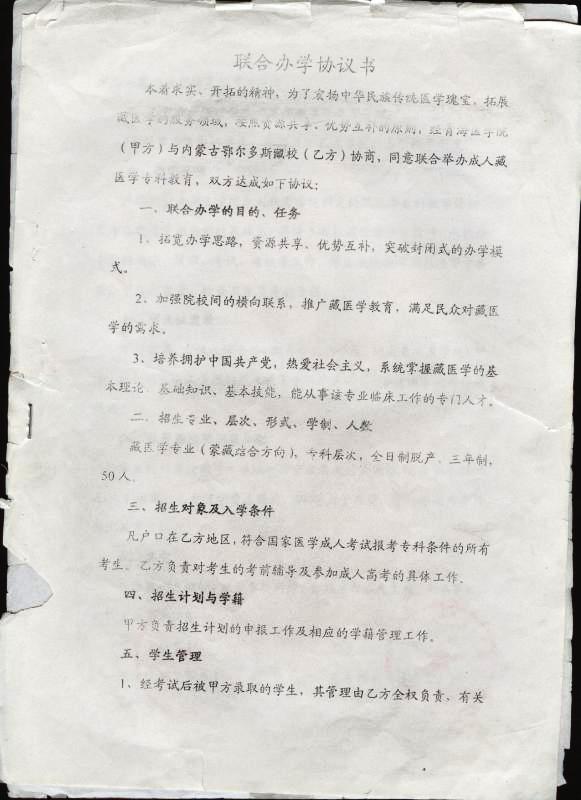 联合办学协议书
本着求实、开拓的精神，为了宏扬中华民族传统医学瑰宝，拓展
藏医学的服务领域，按照资源共享、优势互补的原则，经青海医学院
（甲方）与内蒙古鄂尔多斯藏校（乙方）协商，同意联合举办成人藏
医学专科教育，双方达成如下协议：
一、联合办学的目的、任务
1、拓宽办学思路，资源共享、优势互补，突破封闭式的办学模
式。
2、加强院校间的横向联系，推广藏医学教育，满足民众对藏医
学的需求。
3、培养拥护中国共产党，热爱社会主义，系统掌握藏医学的基
本理论、基础知识、基本技能，能从事该专业临床工作的专门人才。
二、招生专业、层次、形式、学制、人数
藏医学专业（蒙藏结合方向），专科层次，全日制脱产，三年制，
50人。
三、招生对象及入学条件
凡户口在乙方地区，符合国家医学成人考试报考专科条件的所有
考生。乙方负责对考生的考前辅导及参加成人高考的具体工作。
四、招生计划与学籍
甲方负责招生计划的申报工作及相应的学籍管理工作。
五、学生管理
1、经考试后被甲方录取的学生，其管理由乙方全权负责，有关